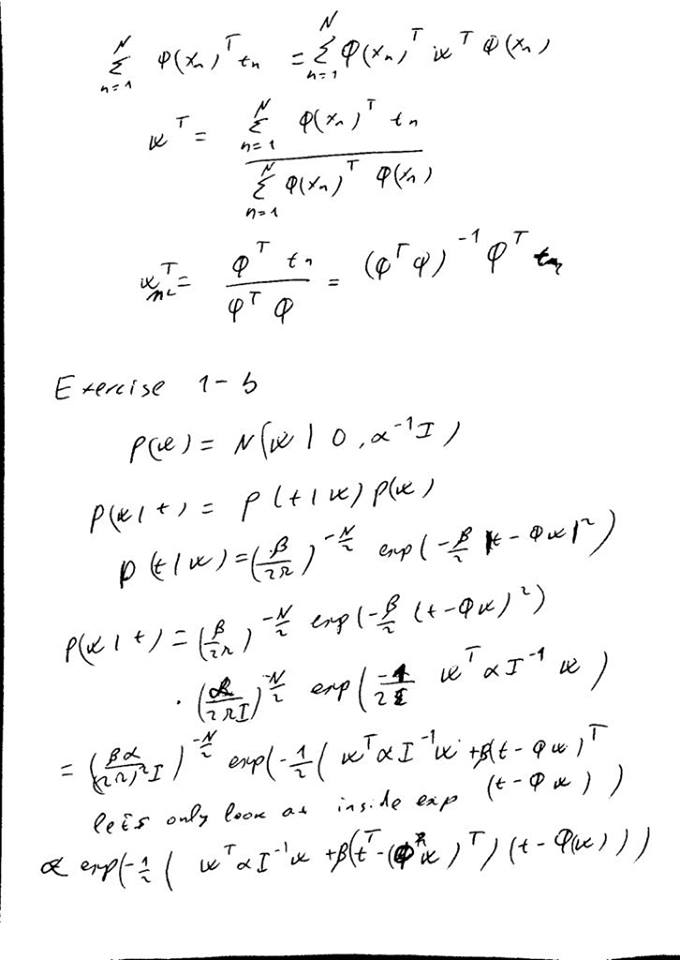 ∑_{n=1}^{N} φ(x_n)^T t_n = ∑_{n=1}^{N} φ(x_n)^T w^T φ(x_n)
w^T = (∑_{n=1}^{N} φ(x_n)^T t_n) / (∑_{n=1}^{N} φ(x_n)^T φ(x_n))
w_{ML}^T = (φ^T t_n) / (φ^T φ) = (φ^T φ)^{-1} φ^T t_n
Exercise 1-b
p(w) = N(w | 0, α^{-1} I)
p(w|t) = p(t|w) p(w)
p(t|w) = (β/2π)^{-N/2} exp(-β/2 |t - φw|^2)
p(w|t) = (β/2π)^{-N/2} exp(-β/2 (t - φw)^2)
· (α/2πI)^{-N/2} exp(-1/2 w^T α I^{-1} w)
= (βα/(2π)^2 I)^{-N/2} exp(-1/2 (w^T α I^{-1} w + β(t - φw)^T
(t - φw))
let's only look at inside exp
∝ exp(-1/2 (w^T α I^{-1} w + β(t^T - (φw)^T) (t - φ(w)))